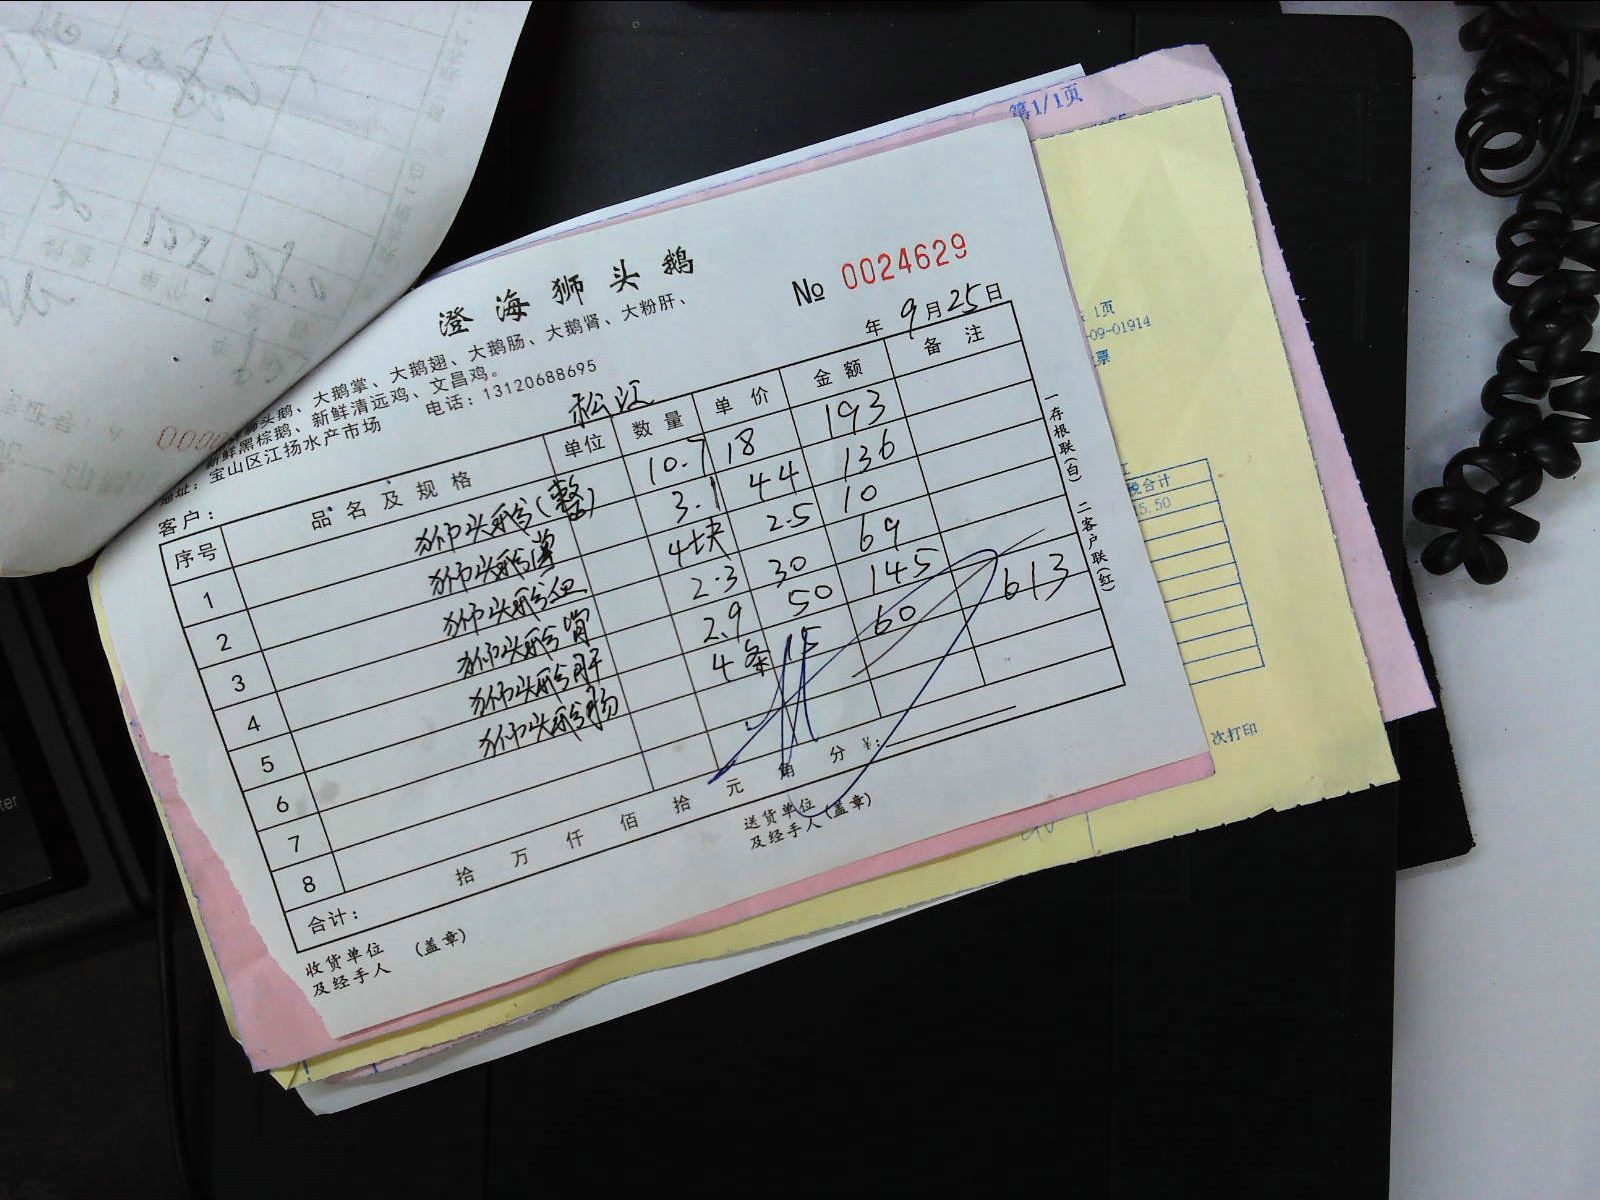 澄海狮头鹅
№ 0024629
头鹅、大鹅掌、大鹅翅、大鹅肠、大鹅肾、大粉肝、
新鲜黑棕鹅、新鲜清远鸡、文昌鸡。
地址：宝山区江扬水产市场 电话：13120688695
客户： 松江 年 9月25日
序号 品名及规格 单位 数量 单价 金额 备注
1 狮头鹅(整) 10.7 18 193
2 狮头鹅 3.1 44 136
3 狮头鹅血 4块 2.5 10
4 狮头鹅肾 2.3 30 69
5 狮头鹅肝 2.9 50 145
6 狮头鹅肠 4条 15 60 613
7
8
合计： 拾 万 仟 佰 拾 元 角 分 ¥：
收货单位及经手人 (盖章)
送货单位及经手人 (盖章)
一存根联(白) 二客户联(红)
第1/1页
1页
-09-01914
票
税合计
5.50
次打印